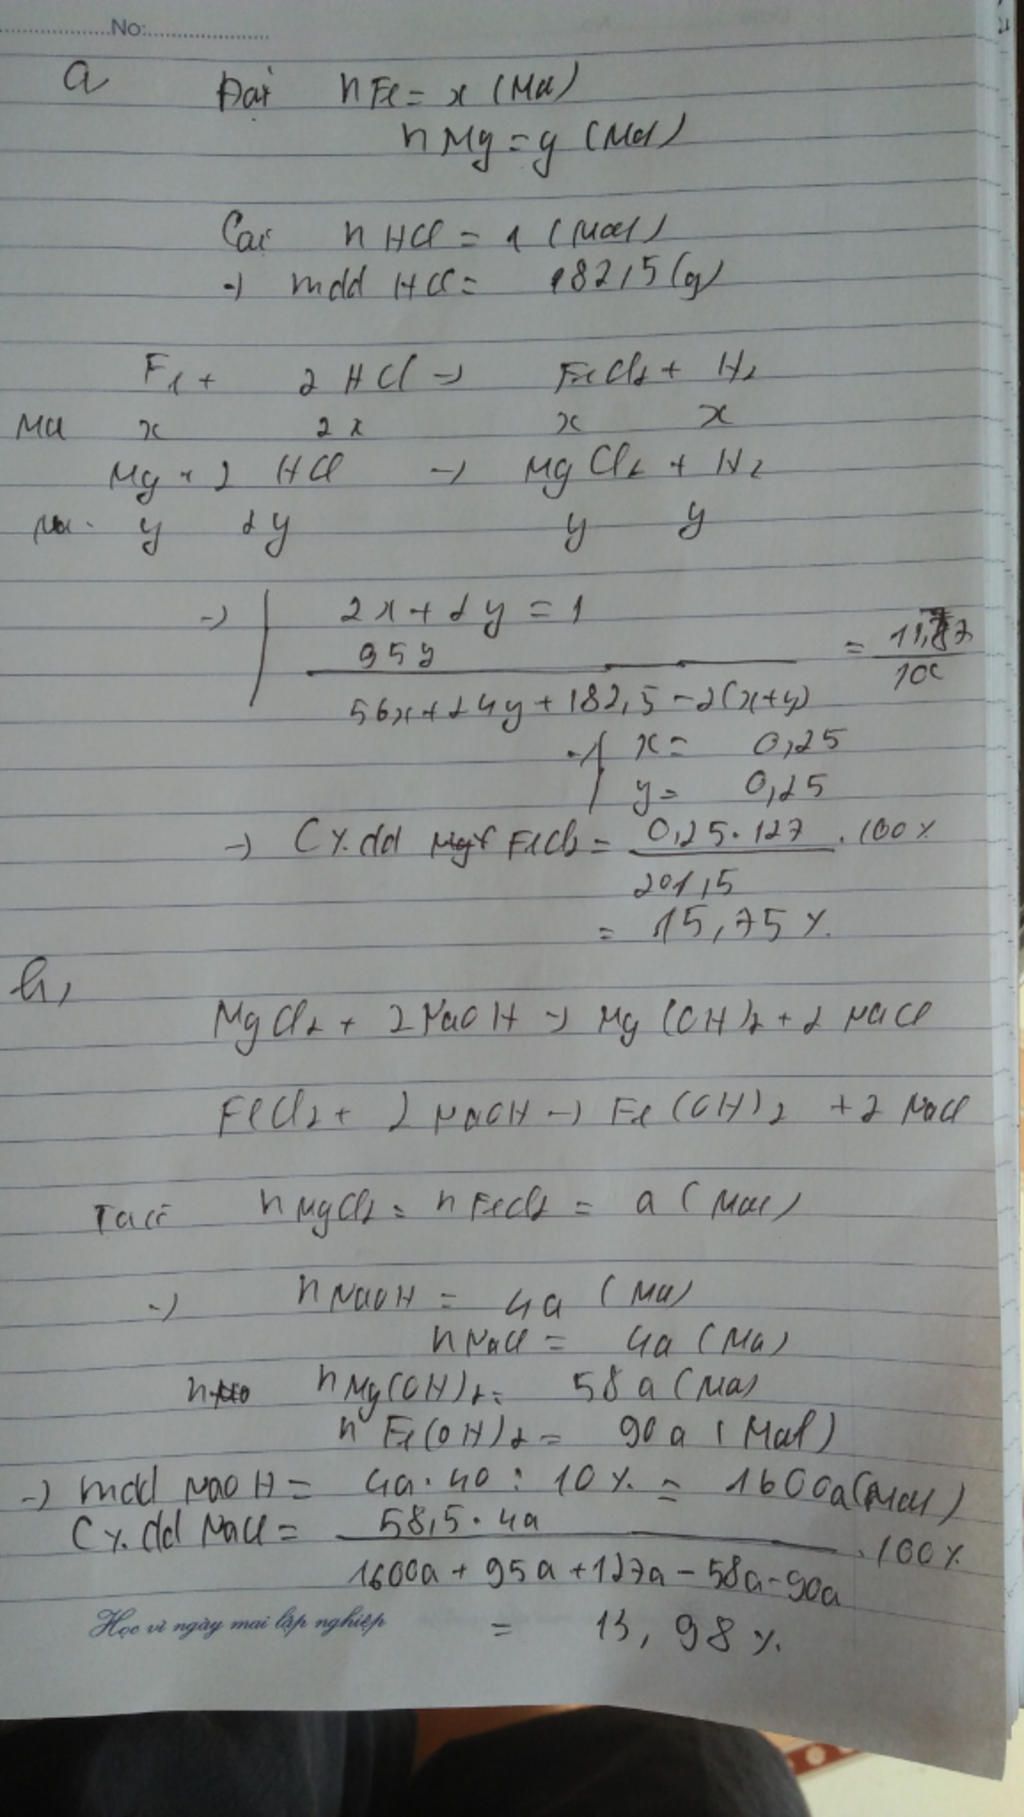 No:
a Đặt nFe = x (Mol)
nMg = y (Mol)
Coi nHCl = 1 (Mol)
→ mdd HCl = 182,5 (g)
Fe + 2HCl → FeCl2 + H2
Mol x 2x x x
Mg + 2 HCl → MgCl2 + H2
Mol. y 2y y y
→ 2x + 2y = 1
95y / (56x + 24y + 182,5 - 2(x+y)) = 11,87/100
→ x = 0,25
y = 0,25
→ C%dd FeCl2 = 0,25.127 / 201,5 .100%
= 15,75%.
b,
MgCl2 + 2NaOH → Mg(OH)2 + 2 NaCl
FeCl2 + 2 NaOH → Fe(OH)2 + 2 NaCl
Ta có nMgCl2 = nFeCl2 = a (Mol)
→ nNaOH = 4a (Mol)
nNaCl = 4a (Mol)
nMg(OH)2 = 58a (Mol)
nFe(OH)2 = 90a (Mol)
→ mdd NaOH = 4a.40 : 10% = 1600a (Mol)
C%dd NaCl = 58,5.4a / (1600a + 95a + 127a - 58a - 90a) .100%
Học vì ngày mai lập nghiệp
= 13,98%.